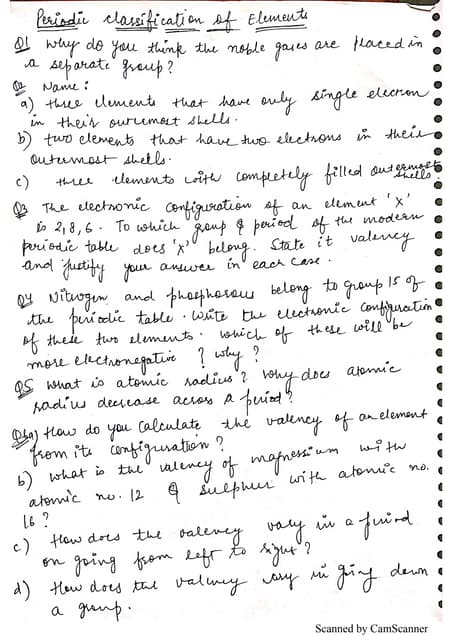 Periodic classification of Elements
Q1 Why do you think the noble gases are placed in
a separate group?
Q2 Name:
a) three elements that have only single electron
in their outermost shells.
b) two elements that have two electrons in their
outermost shells.
c) three elements with completely filled outermost
shells.
Q3 The electronic configuration of an element 'X'
is 2,8,6. To which group & period of the modern
periodic table does 'X' belong. State it valency
and justify your answer in each case.
Q4 Nitrogen and phosphorous belong to group 15 of
the periodic table. Write the electronic configuration
of these two elements. Which of these will be
more electronegative? Why?
Q5 What is atomic radius? Why does atomic
radius decrease across a period?
Q6a) How do you calculate the valency of an element
from its configuration?
b) What is the valency of magnesium with
atomic no. 12 & sulphur with atomic no.
16?
c) How does the valency vary in a period
on going from left to right?
d) How does the valency vary in going down
a group.
Scanned by CamScanner